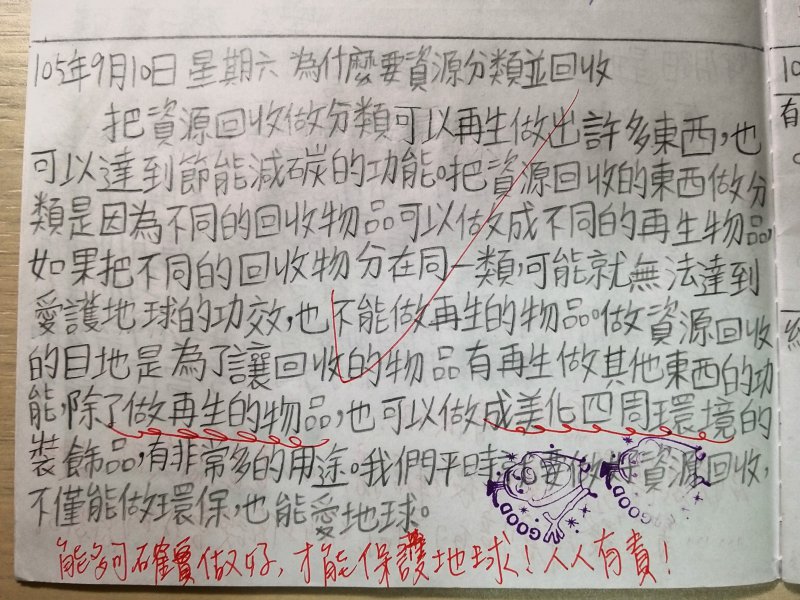 105年9月10日 星期六 為什麼要資源分類並回收
把資源回收做分類可以再生做出許多東西,也
可以達到節能減碳的功能。把資源回收的東西做分
類是因為不同的回收物品可以做成不同的再生物品,
如果把不同的回收物分在同一類,可能就無法達到
愛護地球的功效,也不能做再生的物品。做資源回收
的目地是為了讓回收的物品有再生做其他東西的功
能,除了做再生的物品,也可以做成美化四周環境的
裝飾品,有非常多的用途。我們平時就要做好資源回收,
不僅能做環保,也能愛地球。
GOOD
GOOD
能夠確實做好,才能保護地球!人人有責!
10
有